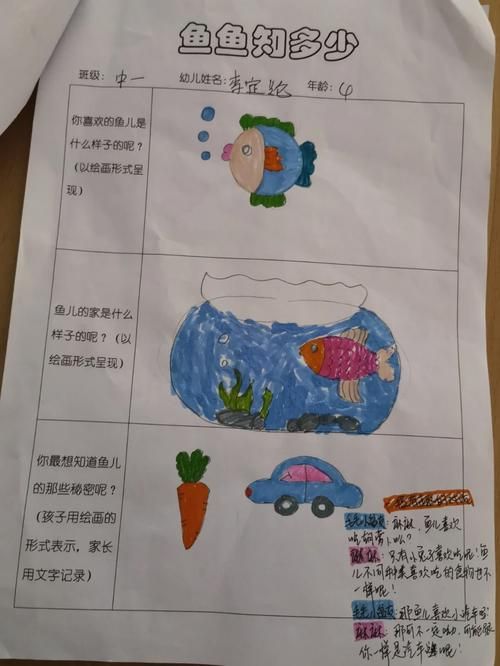 鱼鱼知多少
班级：中一 幼儿姓名：李定 年龄：4
你喜欢的鱼儿是
什么样子的呢？
（以绘画形式呈
现）
鱼儿的家是什么
样子的呢？（以
绘画形式呈现）
你最想知道鱼儿
的那些秘密呢？
（孩子用绘画的
形式表示，家长
用文字记录）
鱼儿喜欢
吃胡萝卜吗？
只有小兔子喜欢吃呢！鱼
儿不同种类喜欢吃的食物也不
一样呢！
那鱼儿喜欢小汽车吗
那可不一定呦，可能跟
你一样是汽车迷呢！